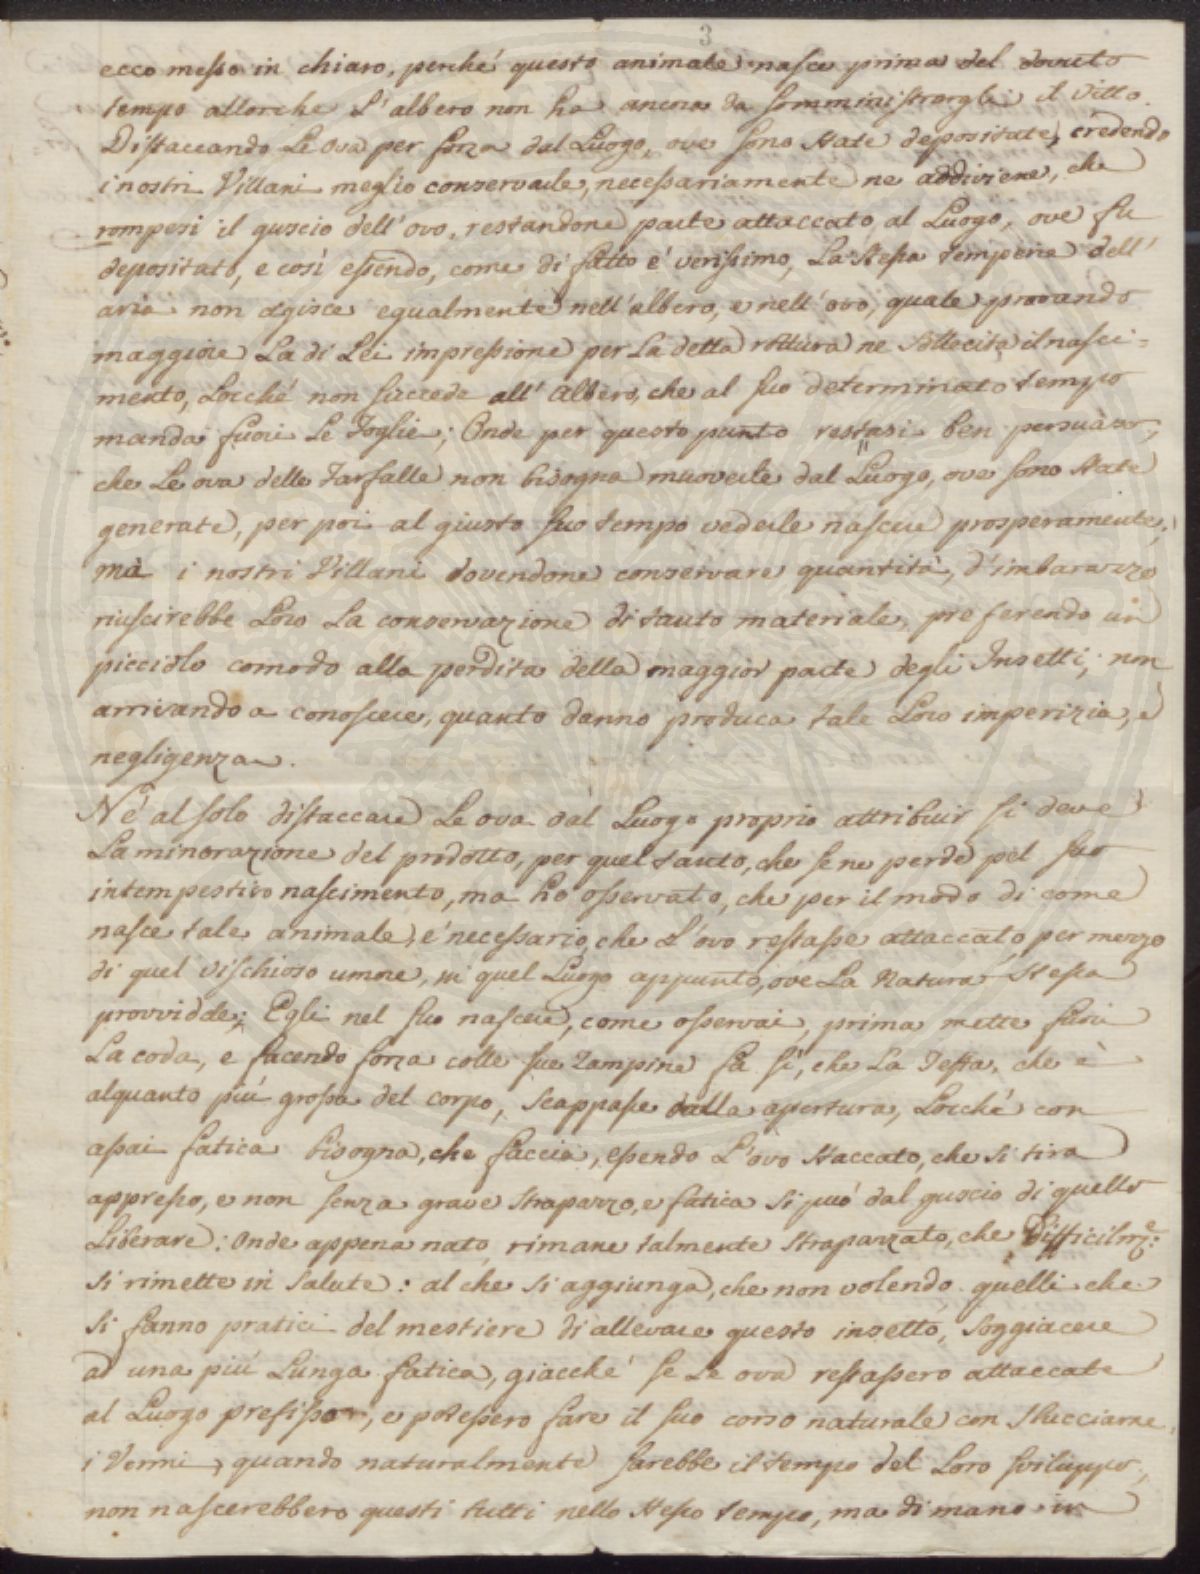 3
ecco messo in chiaro, perché questo animale nasce prima del dovuto
tempo allorche l'albero non ha ancora da somministrargli il vitto.
Distaccando le ova per forza dal Luogo, ove sono state depositate, credendo
i nostri Villani meglio conservarle, necessariamente ne addiviene, che
rompesi il guscio dell'ovo, restandone parte attaccato al Luogo, ove fu
depositato, e così essendo, come di fatto é verissimo, La stessa temperie dell'
aria non agisce egualmente nell'albero, e nell'ovo, quale provando
maggiore La di Lei impressione per La detta rottura ne sollecita il nasci=
mento, Locché non succede all'Albero, che al suo determinato tempo
manda fuori Le Foglie; Onde per questo punto restasi ben persuaso,
che Le ova delle Farfalle non bisogna muoverle dal Luogo, ove sono state
generate, per poi al giusto suo tempo vederle nascere prosperamente;
mà i nostri Villani dovendone conservare quantità, d'imbarazzo
riuscirebbe Loro La conservazione di tanto materiale, preferendo un
picciolo comodo alla perdita della maggior parte degli Insetti, non
arrivando a conoscere, quanto danno produca tale Loro imperizia, e
negligenza.
Né al solo distaccare Le ova dal Luogo proprio attribuir si deve
La minorazione del prodotto, per quel tanto, che se ne perde pel suo
intempestivo nascimento, ma ho osservato, che per il modo di come
nasce tale animale, é necessario, che L'ovo restasse attaccato per mezzo
di quel vischioso umore, in quel Luogo appunto, ove La Natura stessa
provvidde; Egli nel suo nascere, come osservai, prima mette fuori
La coda, e facendo forza colle sue zampine fà sì, che La Testa, che è
alquanto più grossa del corpo, scappasse dalla apertura, Locché con
assai fatica bisogna, che faccia, essendo L'ovo staccato, che si tira
appresso, e non senza grave strapazzo, e fatica si può dal guscio di quello
Liberare: Onde appena nato rimane talmente strapazzato, che Difficilm.e
si rimette in salute: al che si aggiunga, che non volendo quelli che
si fanno pratici del mestiere di allevare questo insetto, soggiacere
ad una più Lunga fatica, giacché se Le ova restassero attaccate
al Luogo prefisso, e potessero fare il suo corso naturale con sbucciarne
i Vermi, quando naturalmente sarebbe il tempo del Loro sviluppo,
non nascerebbero questi tutti nello stesso tempo, ma di mano in